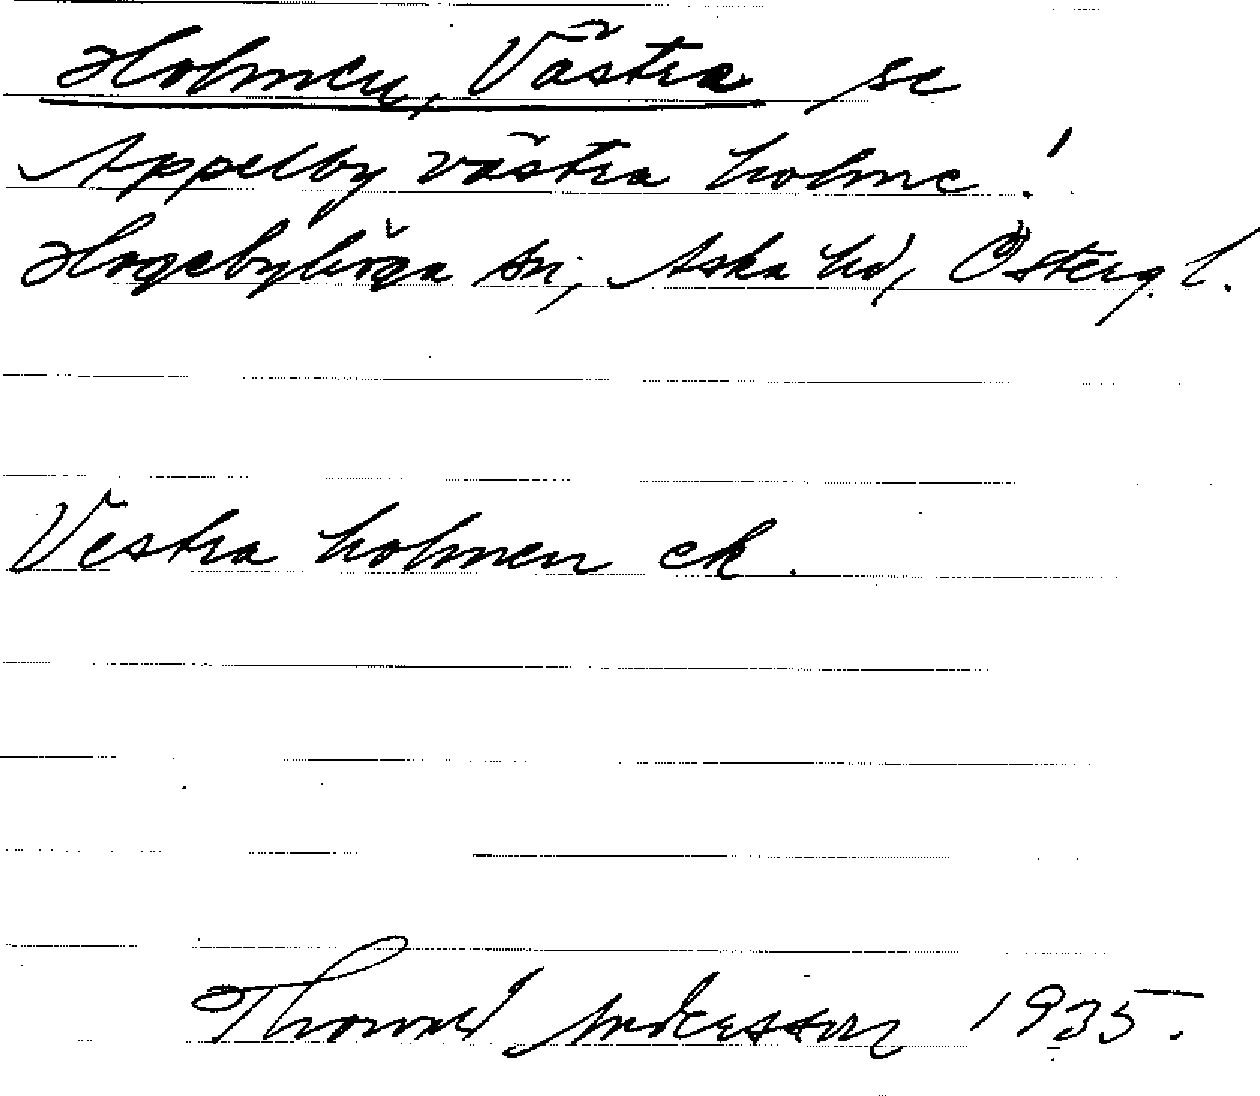 Holmen, Västra se
Appelby västra holme!
Hagebyhöga sn, Aska hd, Österg. l.
Vestra holmen ek.
Thorvald Andersson 1935.